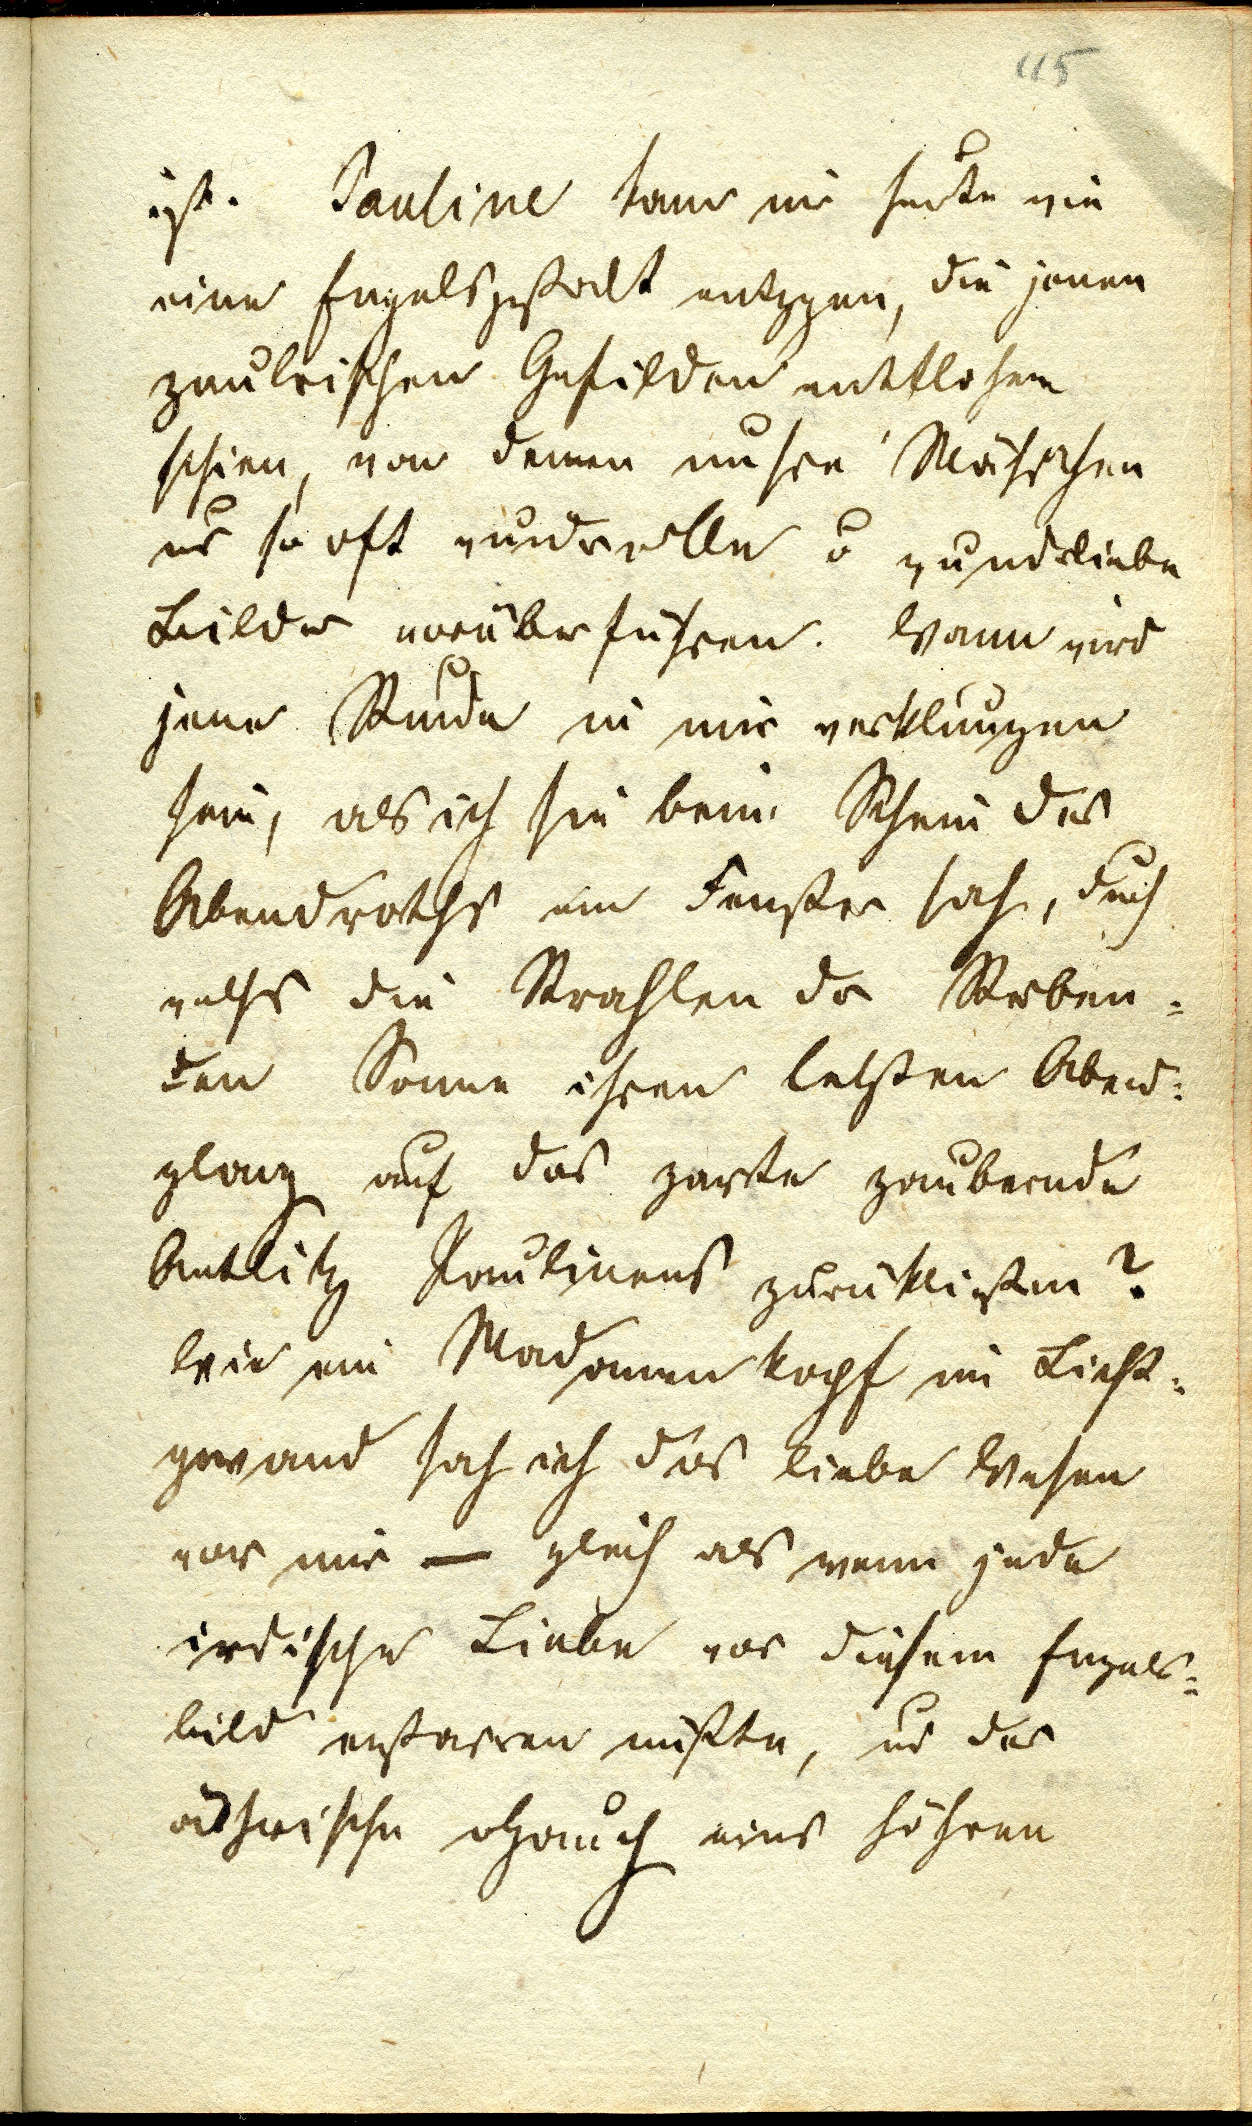 115
ist. Pauline kam mir heute wie
eine Engelsgestalt entgegen, die jenen
zaubrischen Gefilden entflohen
schien, von denen unsre Mährchen
uns so oft wundervolle u wunderliebe
Bilder vorüberführen. Wann wird
jene Stunde in mir verklungen
sein, als ich sie beim Schein des
Abendroths am Fenster sah, durch
welches die Strahlen der sterben=
den Sonne ihren letzten Abend=
glanz auf das zarte zaubernde
Antlitz Paulinens zurückließen?
Wie ein Madonnenkopf im Licht=
gewand sah ich das liebe Wesen
vor mir — gleich als wenn jede
irdische Liebe vor diesem Engels=
bild erstarren müßte, und der
ätherische Hauch eines höhren